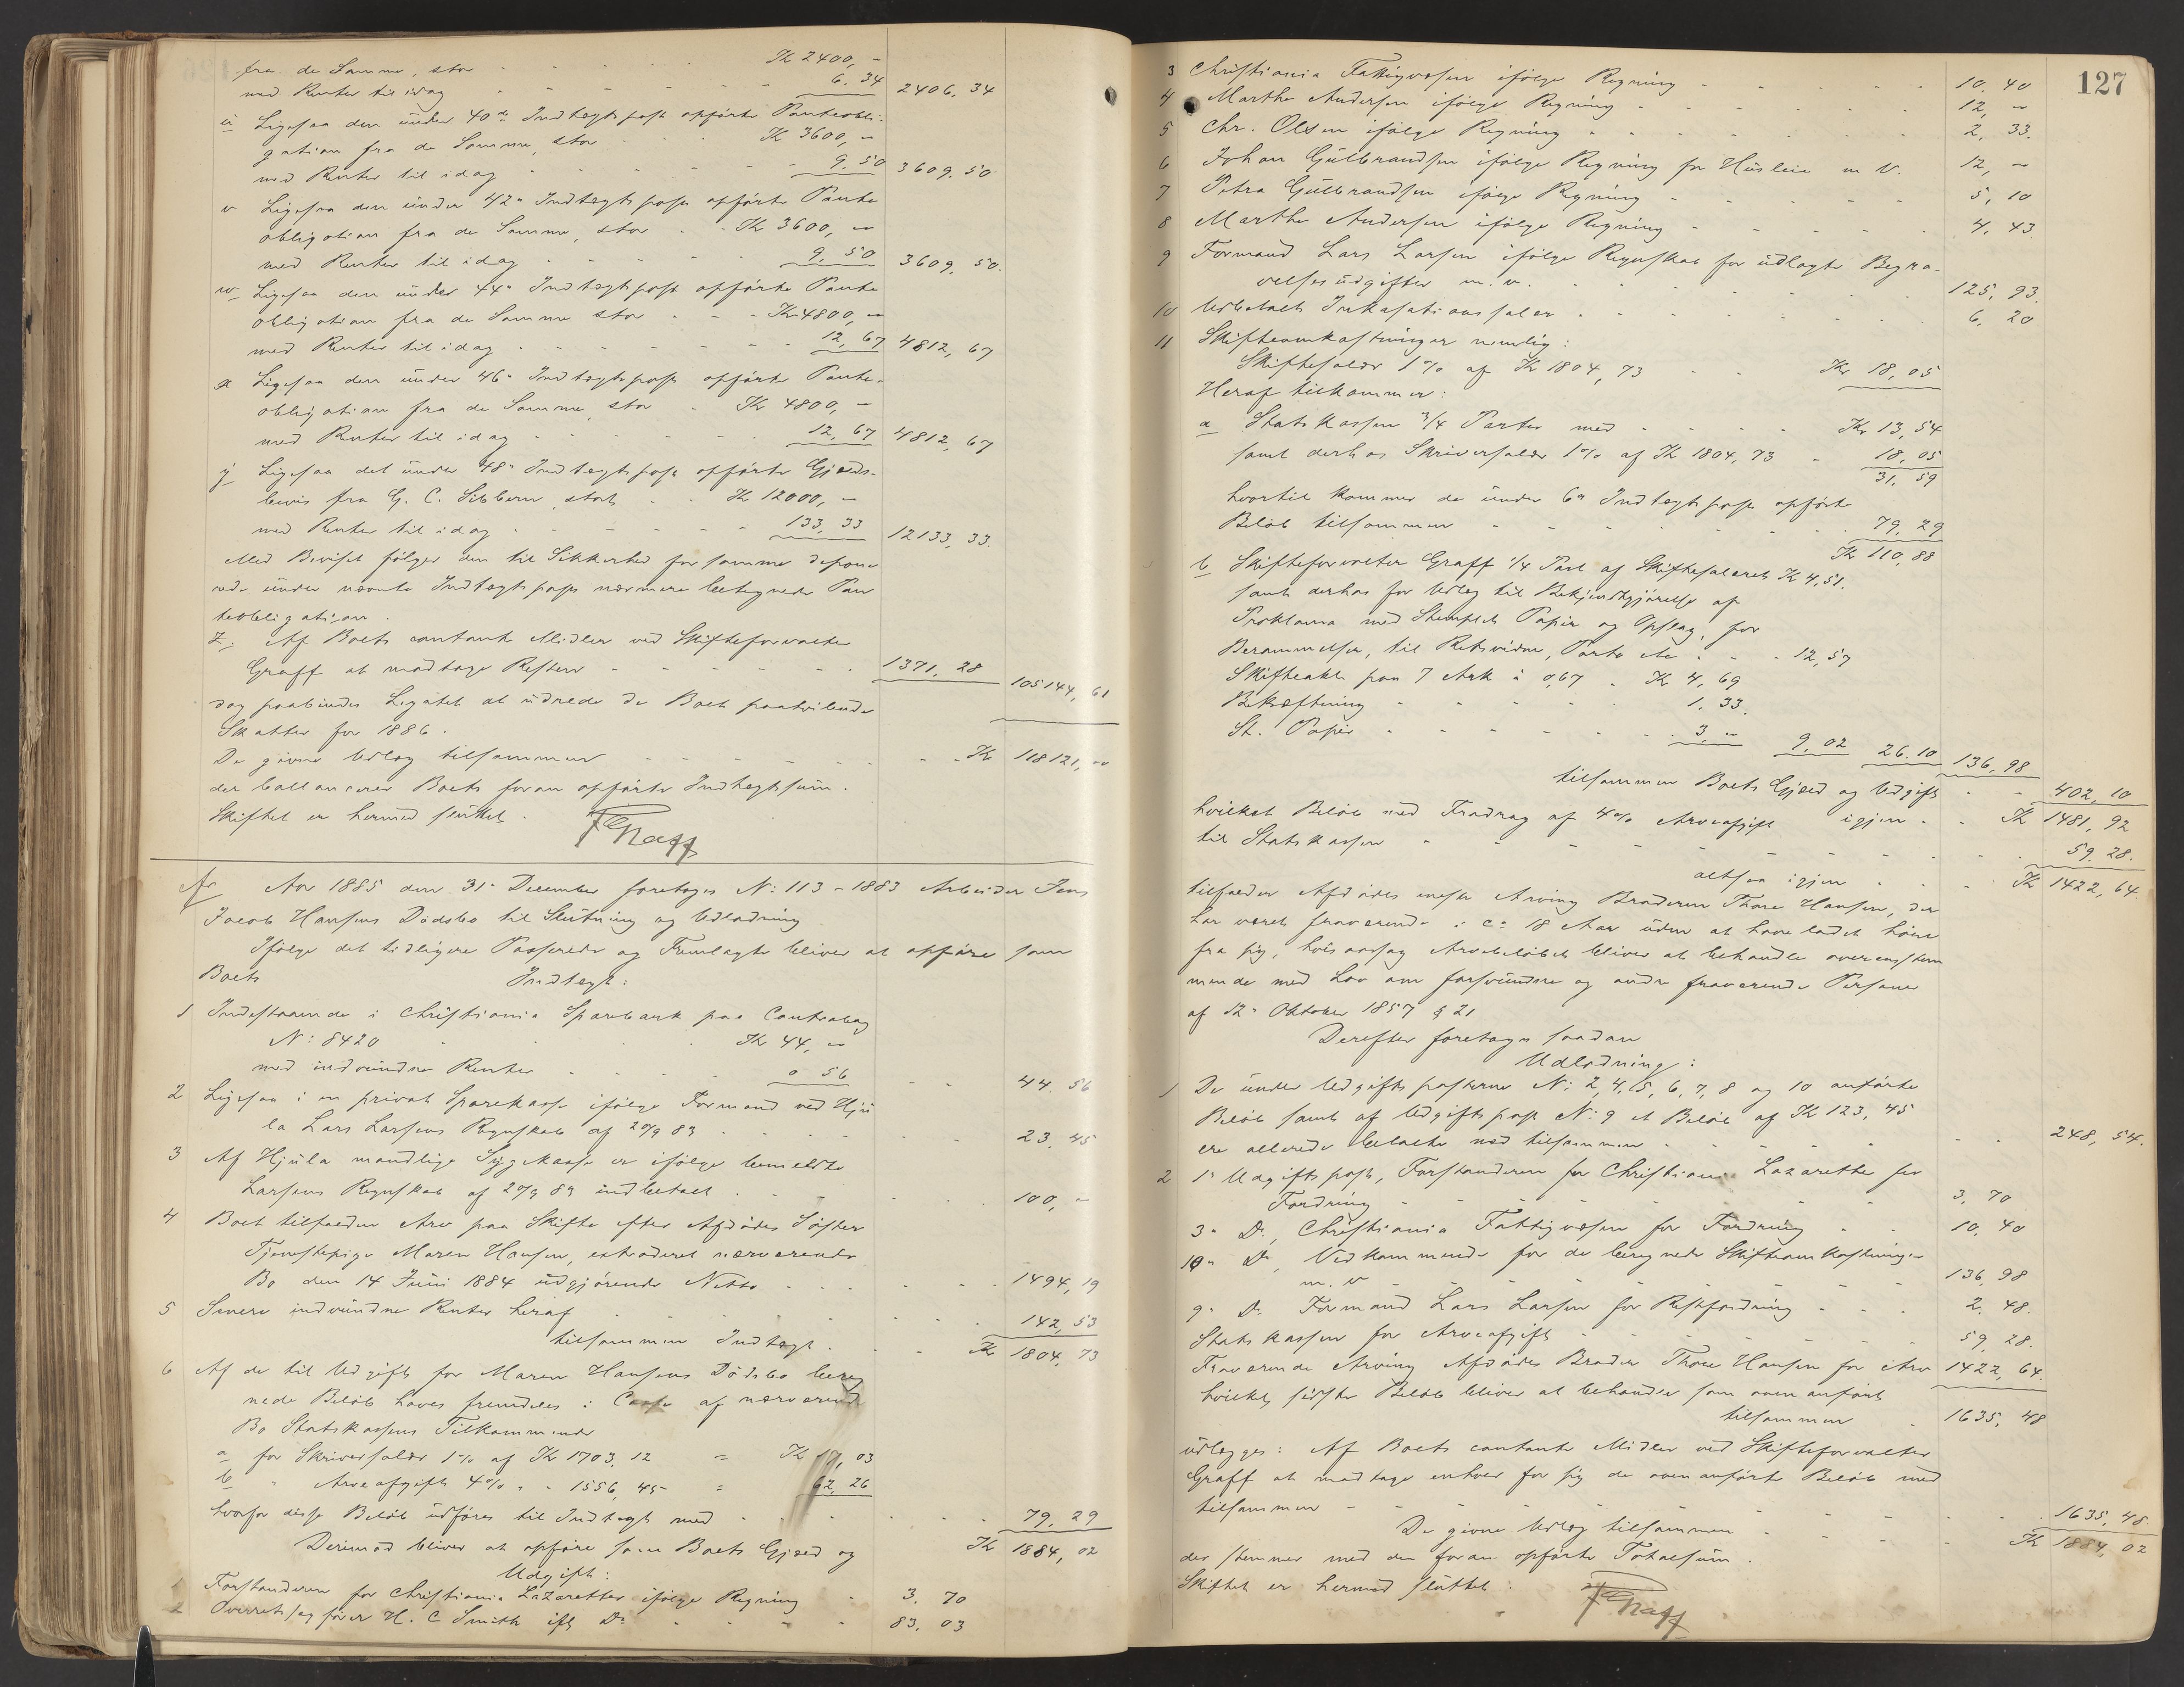 fra de Samme, stor Kr 2400, –
med Renter til idag 6. 34 2406, 34
ü Ligesaa den under 40de Indtægtspost opførte Panteobli-
gation fra de Samme, stor Kr 3600, –
med Renter til idag 9. 50 3609. 50
v Ligesaa den under 42" Indtægtspost opførte Pante
obligation fra de Samme, stor Kr 3600, –
med Renter til idag 9. 50 3609, 50.
w Ligesaa den under 44" Indtægtspost opførte Pante
obligation fra de Samme stor Kr 4800, –
med Renter til idag 12, 67 4812, 67
x Ligesaa den under 46" Indtægtspost opførte Pante-
obligation fra de Samme, stor Kr 4800, –
med Renter til idag 12, 67 4812, 67
y Ligesaa det under 48" Indtægtspost opførte Gjælds-
bevis fra G. C. Sibbern, stort Kr 12000, –
med Renter til idag 133, 33 12133, 33.
Med Beviset følger den til Sikkerhed for samme depone
rede under nævnte Indtægtspost nærmere betegnede Pan
teobligation.
z, Af Boets contante Midler ved Skifteforvalter
Graff at modtage Resten 1371, 28 105144, 61
dog paabindes Legatet at udrede de Boet paahvilende
Skatter for 1886.
De givne Udlæg tilsammen Kr 118121, –
der ballancerer Boets foran opførte Indtægtsum.
Skiftet er hermed sluttet.
Graff
Aar 1885 den 31" December foretoges N: 113 - 1883 Arbeider Jens
Jacob Hansens Dødsbo til Slutning og Udlodning
Ifølge det tidligere Passerede og Fremlagte bliver at opføre som
Boets Indtægt:
1 Indestaaende i Christiania Sparebank paa Contrabog
N: 8420 Kr 44, –
med indvundne Renter 0 56 44 56
2 Ligesaa i en privat Sparekasse ifølge Formand ved Hju
la Lars Larsens Regnskab af 20/9 83 23. 45
3 Af Hjula mandlige Sygekasse er ifølge bemeldte
Larsens Regnskab af 20/9 83 indbetalt 100, –
4 Boet tilfalden Arv paa Skifte efter Afdødes Søster
Tjenestepige Maren Hansen, extraderet nærværende
Bo den 14 Juni 1884 udgjørende Netto 1494, 19
5 Senere indvundne Renter heraf 142, 53
tilsammen Indtægt Kr 1804, 73
6 Af de til Udgift for Maren Hansens Dødsbo bereg
nede Beløb haves fremdeles i Casse af nærværende
Bo Statskassens Tilkommende
a for Skriversalær 1% af Kr 1703. 12 = Kr 17, 03
b " Arveafgift 4% " " 1556, 45 = 62, 26
hvorfor disse Beløb udføres til Indtægt med 79, 29
Kr 1884, 02
Derimod bliver at opføre som Boets Gjæld og
Udgift:
1 Forstanderen for Christiania Lazaretter ifølge Regning 3. 70
2 Overretssagfører H. C Smith ifl Do 83, 03
127
3 Christiania Fattigvæsen ifølge Regning 10. 40
4 Marthe Andersen ifølge Regning 12, –
5 Chr. Olsen ifølge Regning 2, 33.
6 Johan Gulbrandsen ifølge Regning for Husleie m V. 12, –
7 Petra Gulbrandsen ifølge Regning 5, 10
8 Marthe Andersen ifølge Regning 4, 43
9 Formand Lars Larsen ifølge Regnskab for udlagte Begra-
velsesudgifter m. v. 125, 93.
10 Udbetalt Inkasationssalær 6, 20
11 Skifteomkostninger nemlig:
Skiftesalær 1% af Kr 1804, 73 Kr 18, 05
Heraf tilkommer:
a Statskassen 3/4 Parter med Kr 13, 54
samt derhos Skriversalær 1% af Kr 1804, 73 18, 05
31, 59
hvortil kommer de under 6" Indtægtspost opførte
Beløb tilsammen 79, 29
Kr 110, 88
b Skifteforvalter Graff 1/4 Part af Skiftesalæret Kr 4, 51.
samt derhos for Udlæg til Bekjendtgjørelse af
Proklama med Stemplet Papir og Opslag, for
Berammelser, til Retsvidne, Porto etc 12, 57
Skifteakt paa 7 Ark à 0,67 Kr 4, 69
Bekræftning 1. 33.
St. Papir 3, – 9, 02 26. 10 136, 98
tilsammen Boets Gjæld og Udgift 402, 10
hvilket Beløb med Fradrag af 4% Arveafgift igjen Kr 1481, 92
til Statskassen 59. 28.
altsaa igjen Kr 1422, 64.
tilfalder Afdødes eneste Arving Broderen Thore Hansen, der
har været fraværende i ca 18 Aar uden at have ladet høre
fra sig, hvis aarsag Arvebeløbet bliver at behandle overensstem
mende med Lov om forsvundne og andre fraværende Personer
af 12" Oktober 1857 § 21
Derefter foretages saadan
Udlodning:
1 De under Udgiftsposterne N: 2, 4, 5, 6, 7, 8 og 10 anførte
Beløb samt af Udgiftspost N: 9 et Beløb af Kr 123, 45
ere allerede betalte med tilsammen 248, 54.
2 1" Udgiftspost, Forstanderen for Christiania Lazarether for
Fordring 3, 70
3" Do, Christiania Fattigvæsen for Fordring 10, 40
10" Do, Vedkommende for de beregnede Skifteomkostninger
m. v 136, 98
9" Do Formand Lars Larsen for Restfordring 2, 48.
Statskassen for Arveafgift 59, 28.
Fraværende Arving Afdødes Broder Thore Hansen for Arv 1422, 64.
hvilket sidste Beløb bliver at behandle som oven anført
tilsammen 1635, 48
udlægges: Af Boets contante Midler ved Skifteforvalter
Graff at modtage enhver for sig de ovenanførte Beløb med
tilsammen 1635, 48.
De givne Udlæg tilsammen Kr 1884, 02
der stemmer med den foran opførte Totalsum.
Skiftet er hermed sluttet:
Graff